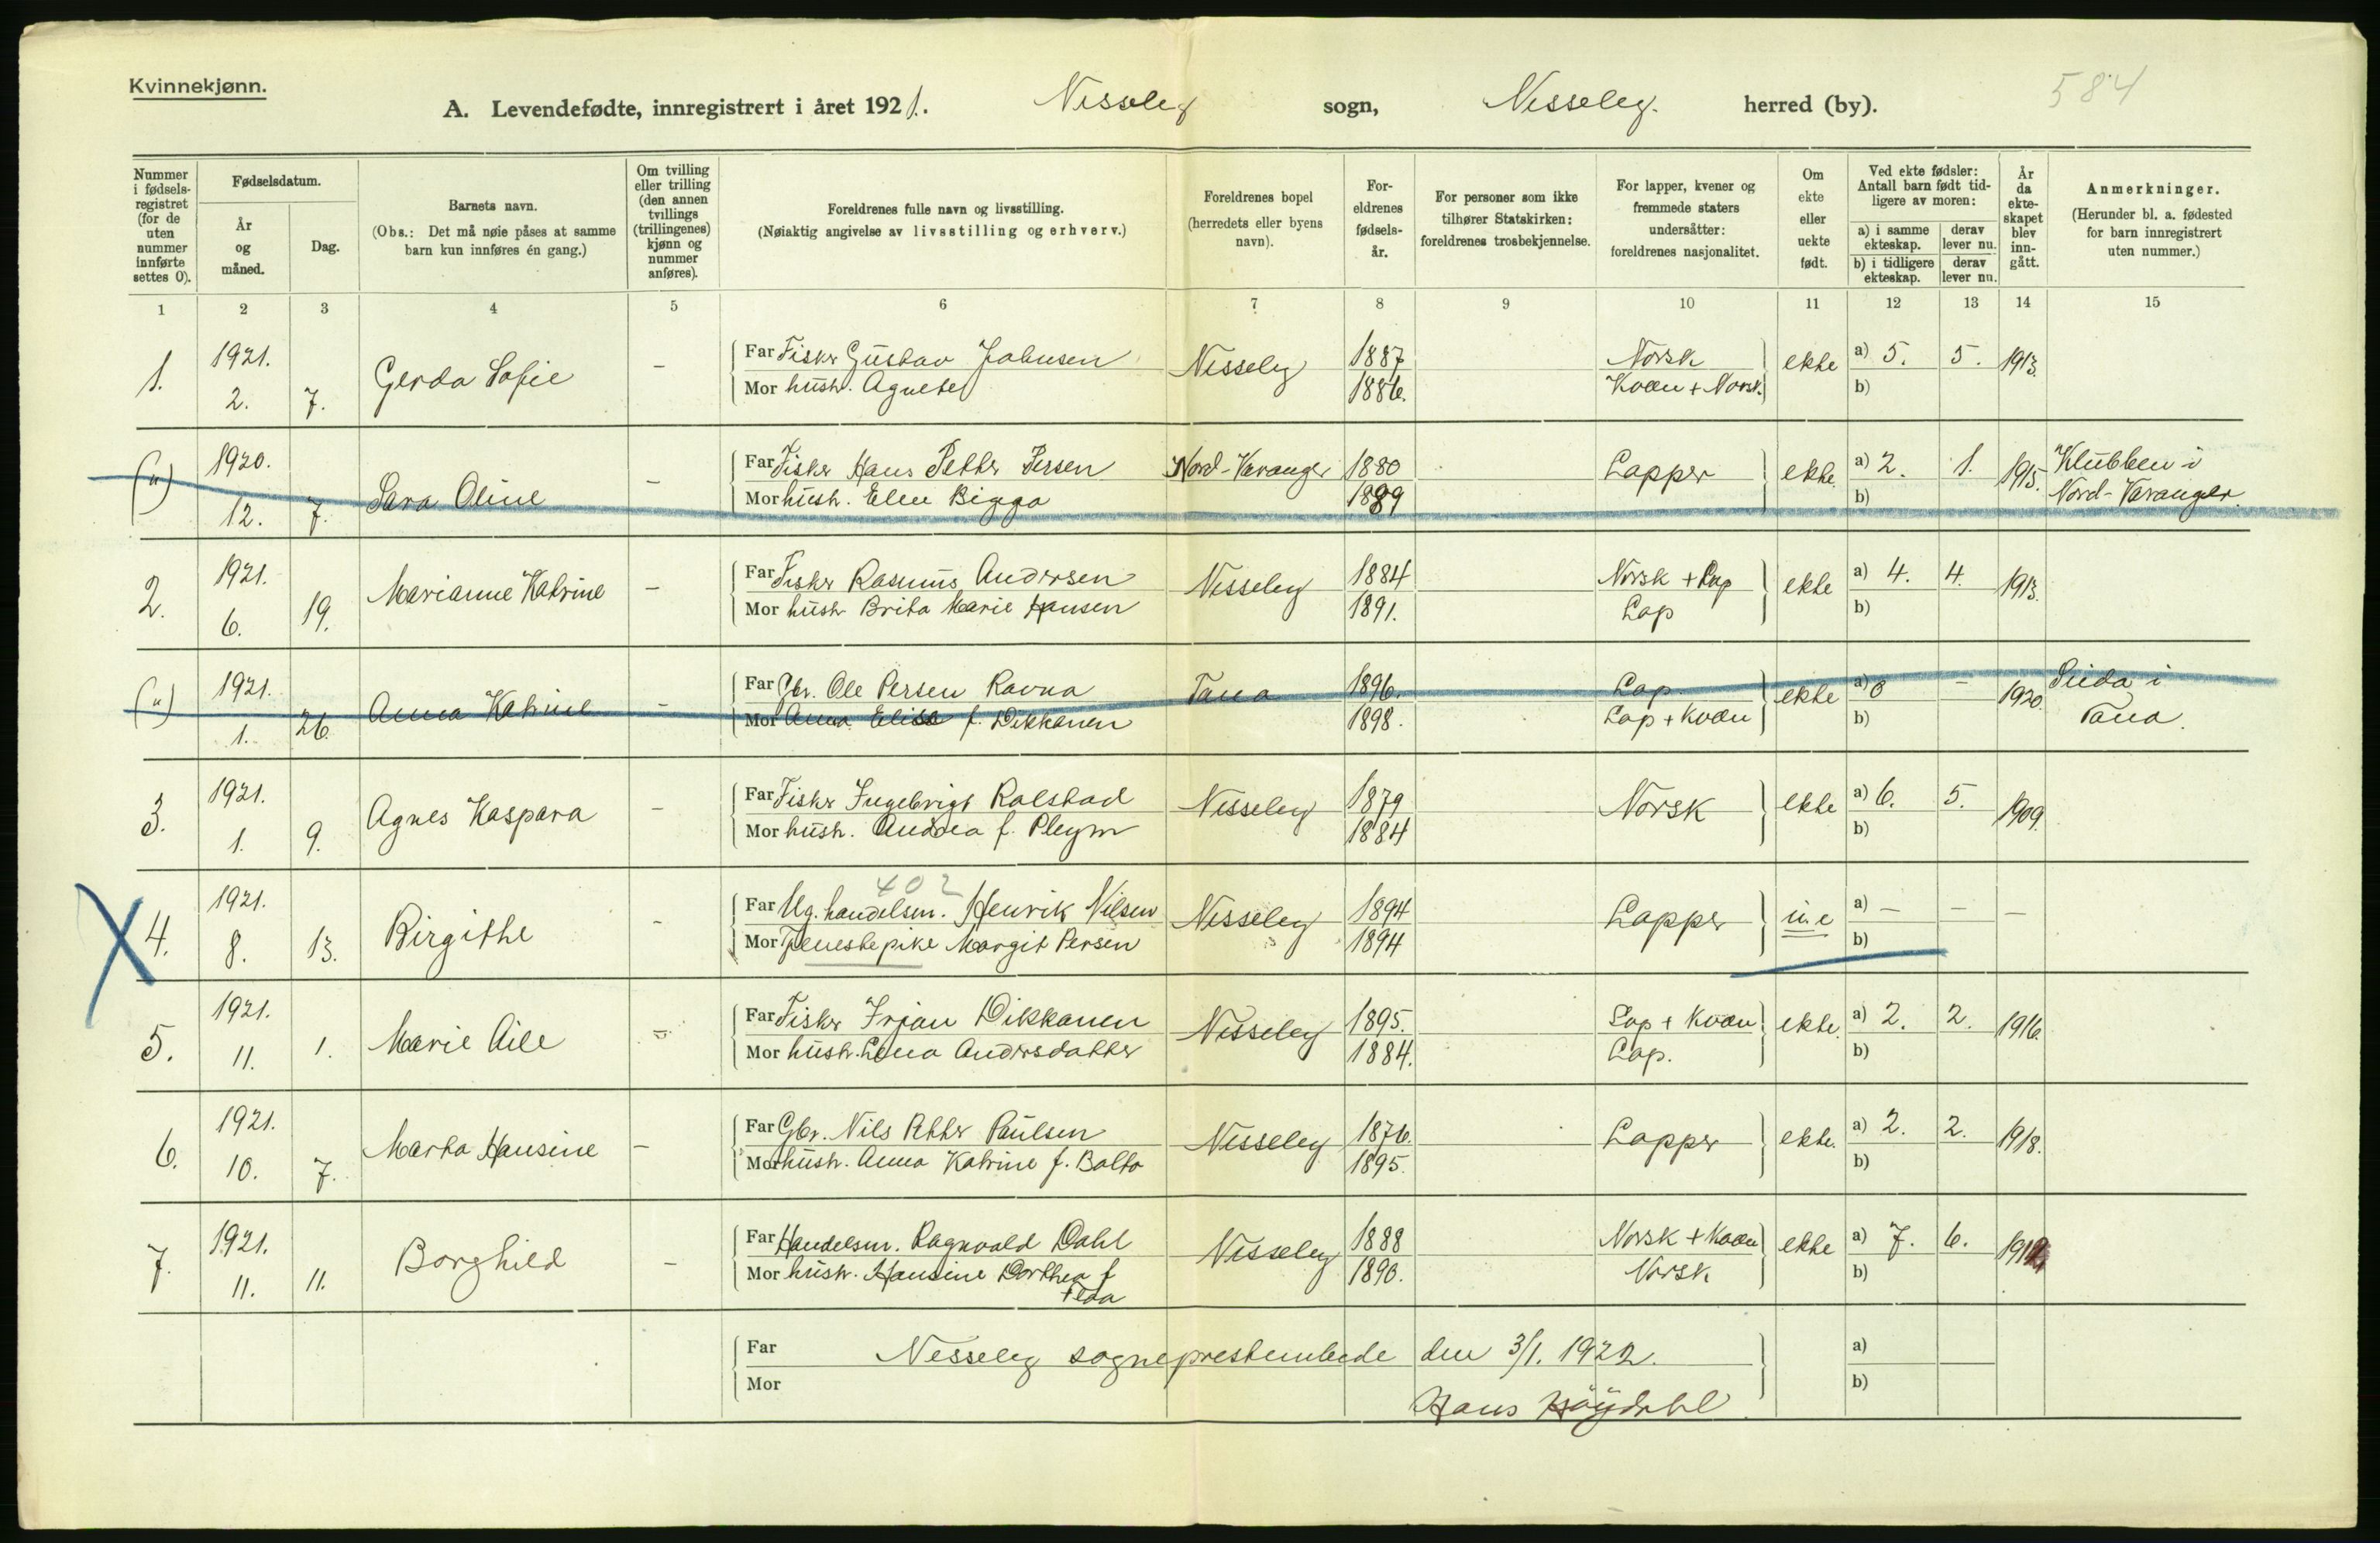 Kvinnekjønn.
A. Levendefødte, innregistrert i året 1921. Nesseby sogn, Nesseby. herred (by).
584
Nummer i fødselsregistret (for de uten nummer innførte settes 0).
Fødselsdatum.
År og måned.
Dag.
Barnets navn.
(Obs.: Det må nøie påses at samme barn kun innføres én gang.)
Om tvilling eller trilling (den annen tvillings (trillingenes) kjønn og nummer anføres).
Foreldrenes fulle navn og livsstilling.
(Nøiaktig angivelse av livsstilling og erhverv.)
Foreldrenes bopel (herredets eller byens navn).
Foreldrenes fødselsår.
For personer som ikke tilhører Statskirken: foreldrenes trosbekjennelse.
For lapper, kvener og fremmede staters undersåtter: foreldrenes nasjonalitet.
Om ekte eller uekte født.
Ved ekte fødsler: Antall barn født tidligere av moren:
a) i samme ekteskap. derav lever nu.
b) i tidligere ekteskap. derav lever nu.
År da ekteskapet blev inngått.
Anmerkninger.
(Herunder bl. a. fødested for barn innregistrert uten nummer.)
1 2 3 4 5 6 7 8 9 10 11 12 13 14 15
1. 1921. 2. 7. Gerda Sofie – Far Fisker Gustav Johnsen Nesseby 1887 Norsk ekte a) 5. 5. 1913.
Mor hustr. Agnete 1886. Kvæn + Norsk. b)
(u) 1920. 12. 7. Sara Oline – Far Fisker Hans Petter Persen Nord-Varanger 1880 Lapper ekte. a) 2. 1. 1915. Klubben i
Mor hustr. Elen Bigga 1889 b) Nord-Varanger.
2. 1921. 6. 19. Marianne Katrine – Far Fisker Rasmus Andersen Nesseby 1884 Norsk + Lap ekte a) 4. 4. 1913.
Mor hustr Brita Marie Hansen 1891. Lap b)
(u) 1921. 1. 26. Anna Katrine – Far Gbr. Ole Persen Ravna Tana 1896. Lap. ekte a) 0 – 1920. Seida i
Mor Anna Elisa f. Dikkanen 1898. Lap + Kvæn b) Tana.
3. 1921. 1. 9. Agnes Kaspara – Far Fisker Ingebrigt Rolstad Nesseby 1879 Norsk ekte a) 6. 5. 1909.
Mor hustr. Andrea f. Pleym 1884 b)
402
4. 1921. 8. 13. Birgithe – Far Ug. handelsm. Henrik Nilsen Nesseby 1894 Lapper u.e a) – – –
Mor Tjenestepike Margit Persen 1894 b)
5. 1921. 11. 1. Marie Aile – Far Fisker Irjan Dikkanen Nesseby 1895. Lap + Kvæn ekte. a) 2. 2. 1916.
Mor hustr. Lena Andersdatter 1884. Lap. b)
6. 1921. 10. 7. Marta Hansine – Far Gbr. Nils Petter Paulsen Nesseby 1876. Lapper ekte. a) 2. 2. 1918.
Mor hustr. Anna Katrine f. Balto 1895. b)
7. 1921. 11. 11. Borghild – Far Handelsm. Ragnvald Dahl Nesseby 1888 Norsk + Kvæn ekte a) 7. 6. 1912
Mor hustr. Hansine Dorthea f 1890. Norsk b)
Far Nesseby sogneprestembede den 3/1. 1922. a)
Mor Hans Høydahl b)